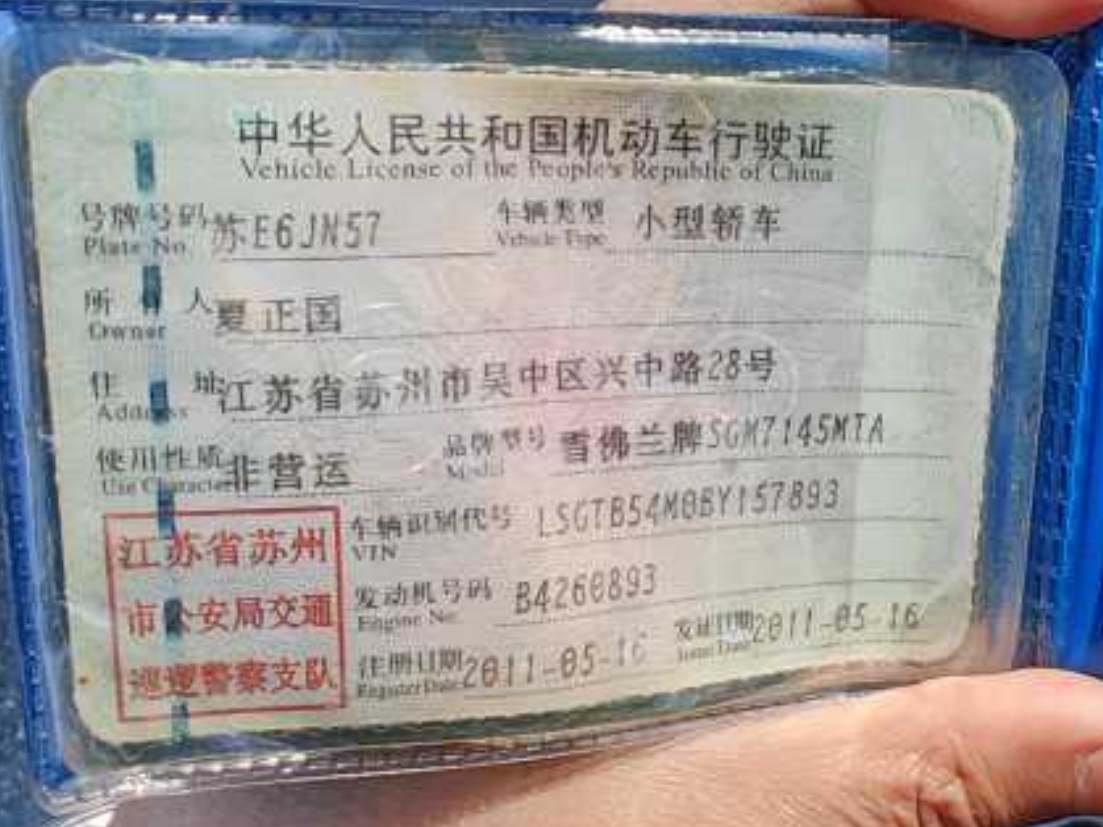 中华人民共和国机动车行驶证
Vehicle License of the People's Republic of China
号牌号码 苏E6JN57 车辆类型 小型轿车
Plate No. Vehicle Type
所有人 夏正国
Owner
住址 江苏省苏州市吴中区兴中路28号
Address
使用性质 非营运 品牌型号 雪佛兰牌SGM7145MTA
Use Character Model
车辆识别代号 LSGTB54M0BY157893
VIN
发动机号码 B4260893
Engine No.
注册日期 2011-05-16 发证日期 2011-05-16
Register Date Issue Date
江苏省苏州
市公安局交通
巡逻警察支队